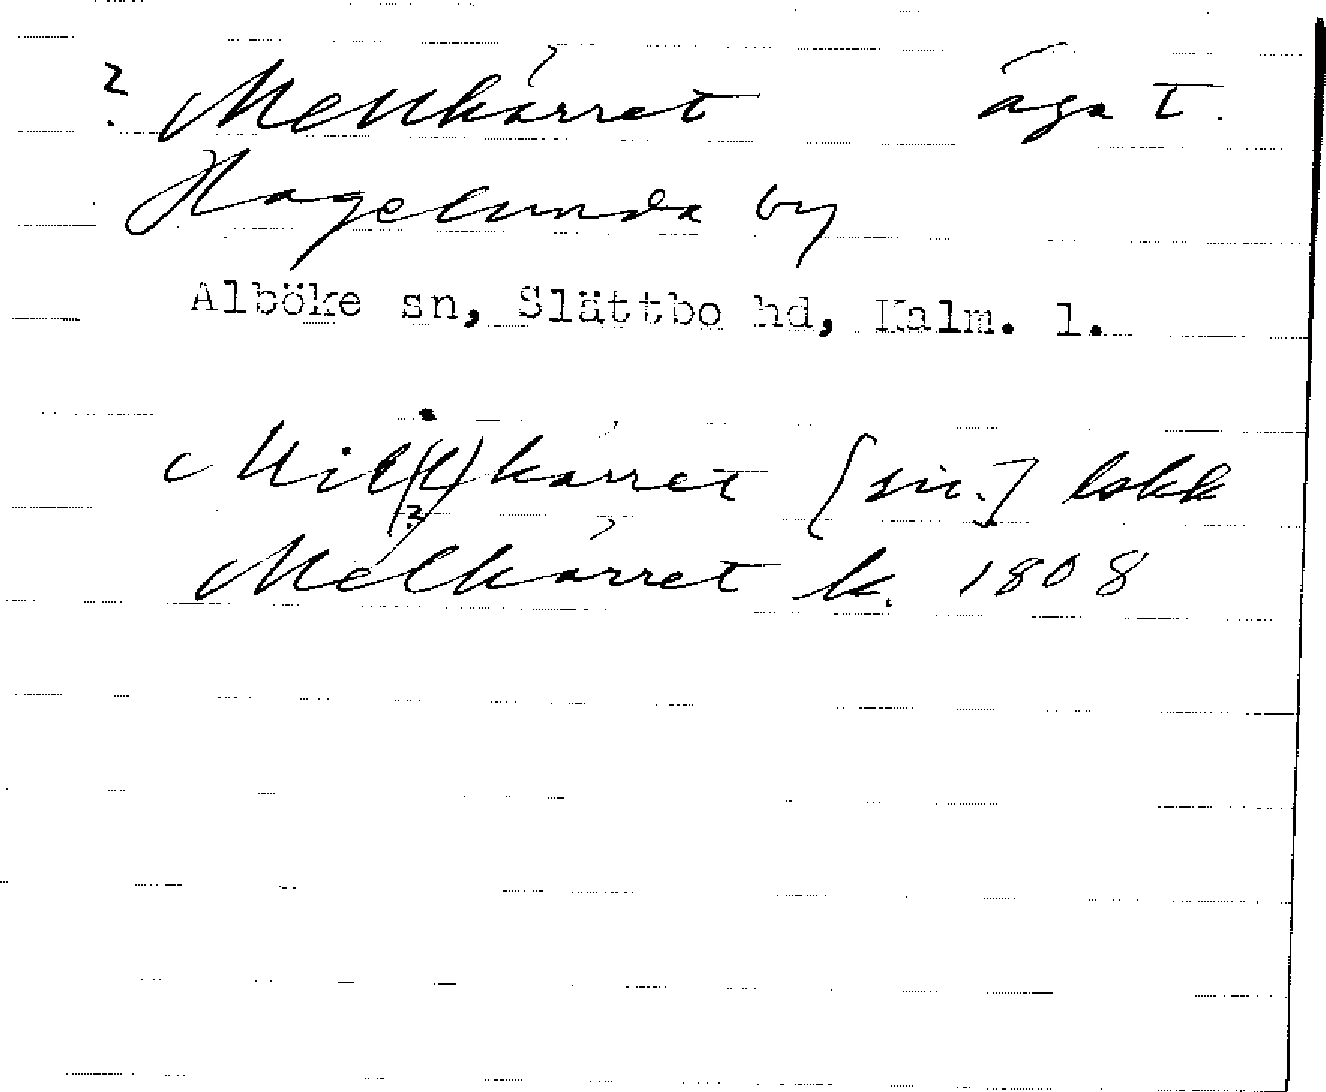 ? Mellkärret äga t.
Hagelunda by
Alböke sn, Slättbo hd, Kalm. l.
Mil(l)kärret [sic.] lokk
(?)
Melkärret k. 1808